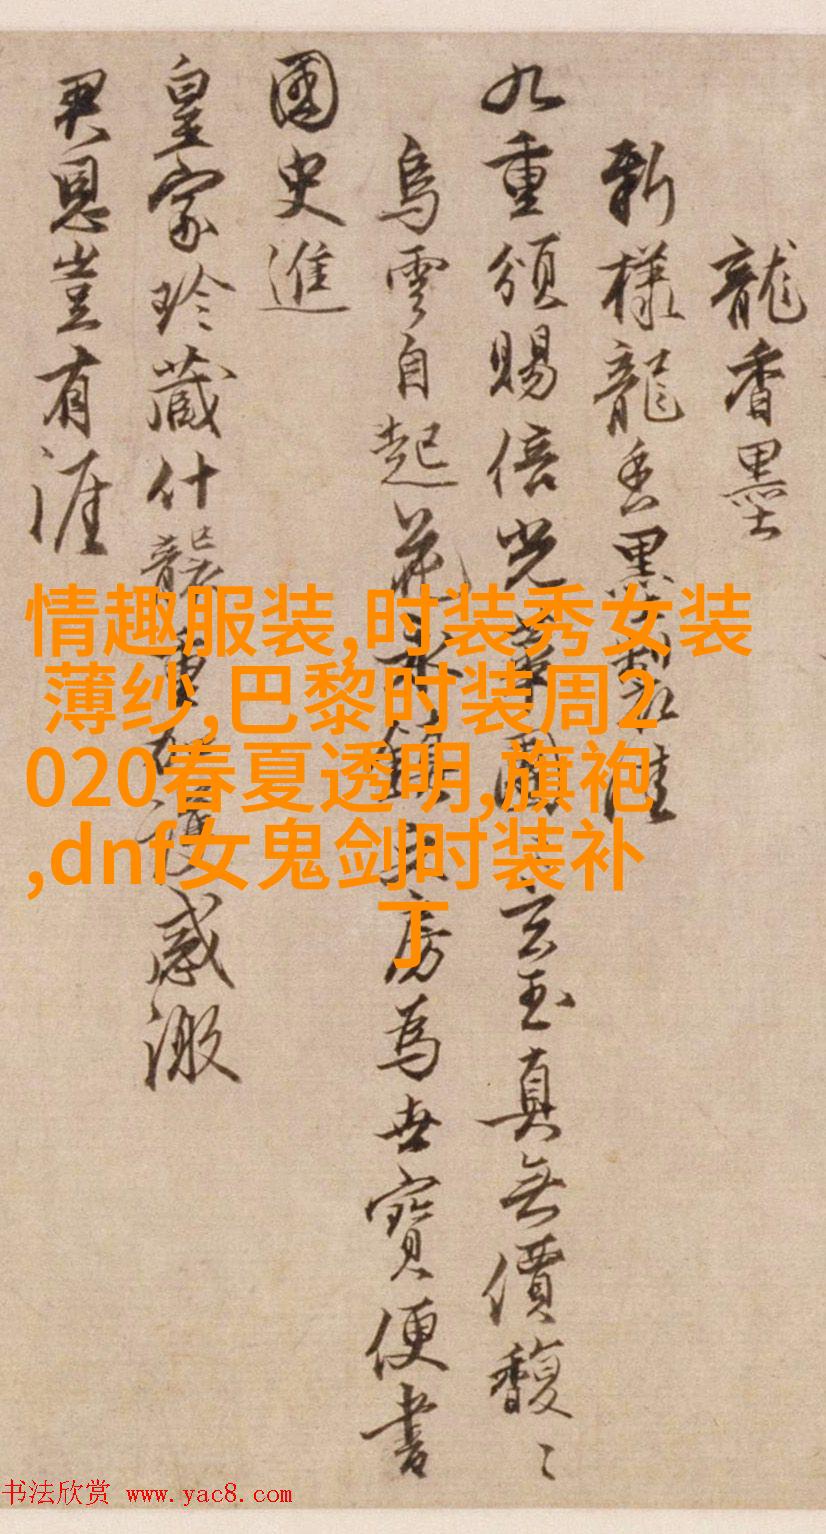 龍香墨
新樣龍香墨製佳
九重頒賜倍光華 玄玉真無價馥〻
烏雲自起花 房為世寶便書
國史進
皇家珍藏什襲 感激
君恩豈有涯
情趣服装,时装秀女装
薄纱,巴黎时装周2
020春夏透明,旗袍
,dnf女鬼剑时装补
丁
书法欣赏 www.yac8.com